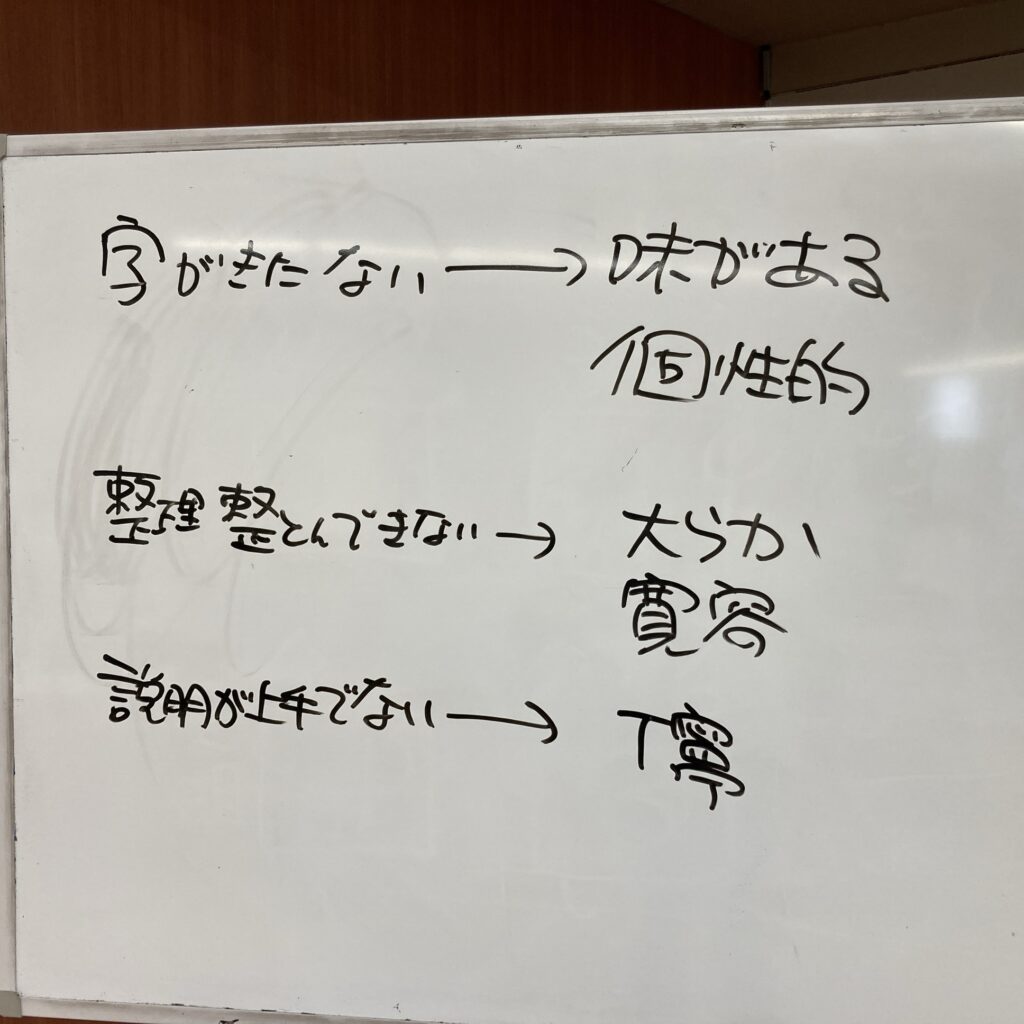 字がきたない→味がある
個性的
整理整とんできない→大らか
寛容
説明が上手でない→丁寧